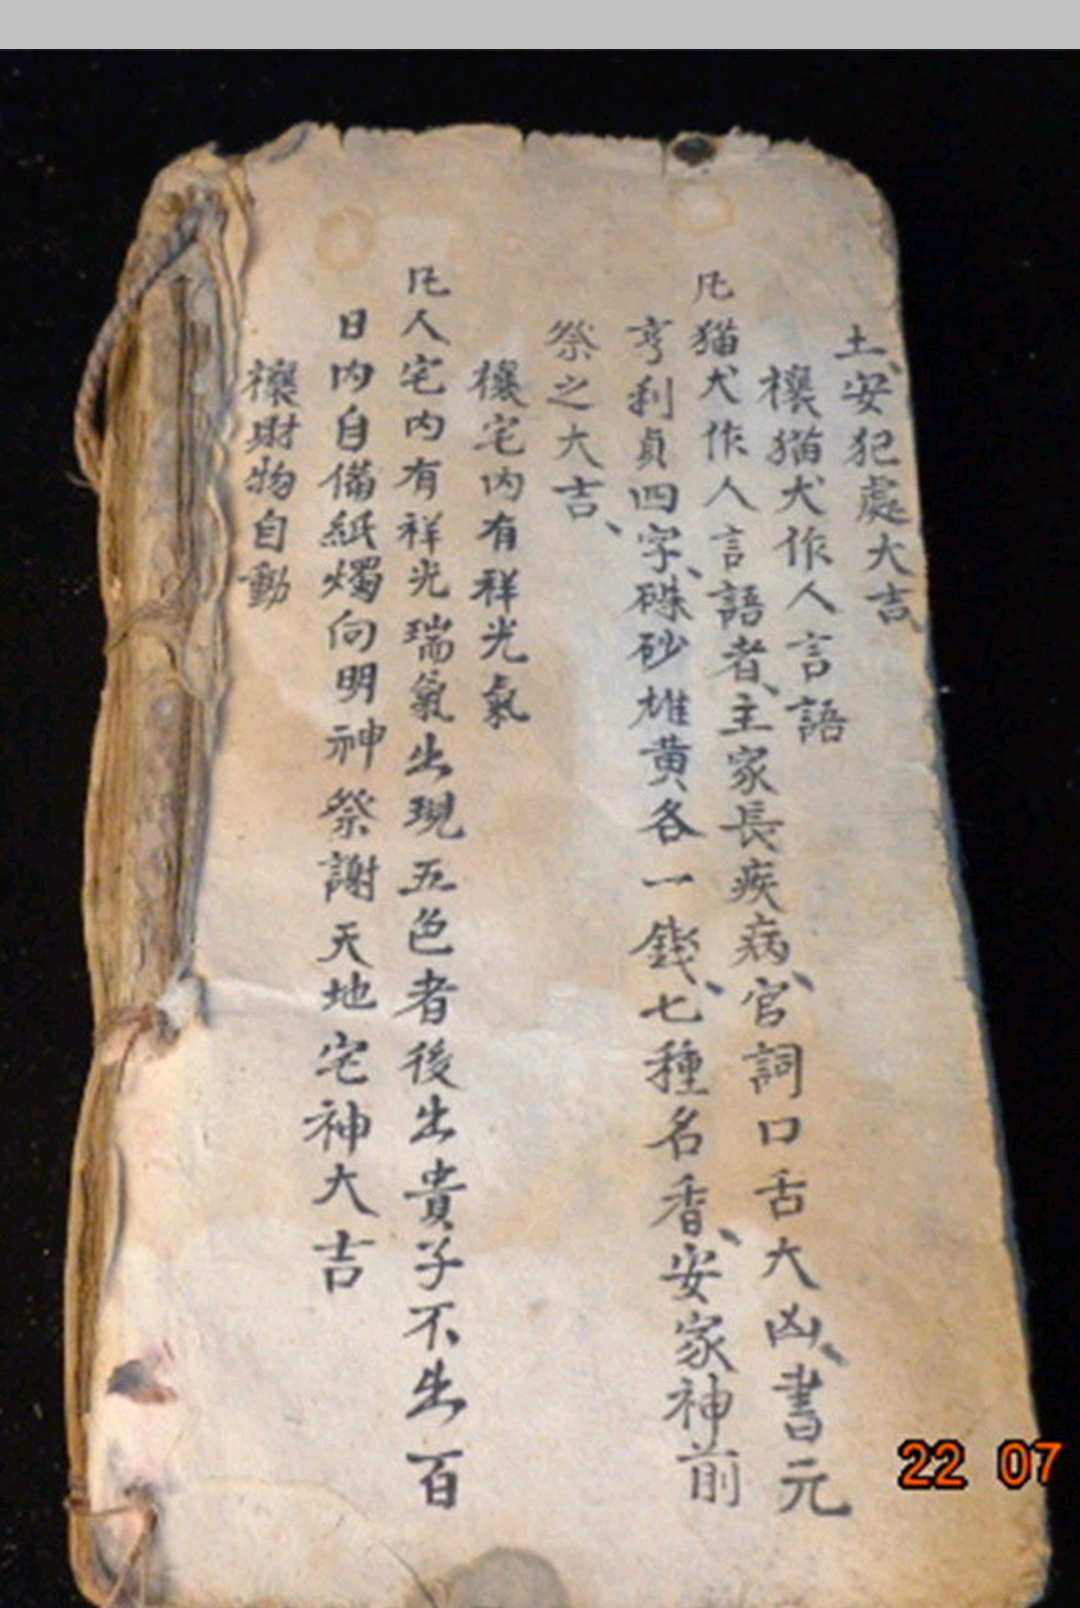 土、安犯處大吉、
禳猫犬作人言語
凡猫犬作人言語者、主家長疾病、官詞口舌大凶、書元
亨利貞四字、硃砂雄黄各一錢、七種名香、安家神前
祭之大吉、
禳宅内有祥光氣
凡人宅内有祥光瑞氣出現五色者後出貴子不出百
日内自備紙燭向明神祭謝天地宅神大吉
禳財物自動
22 07